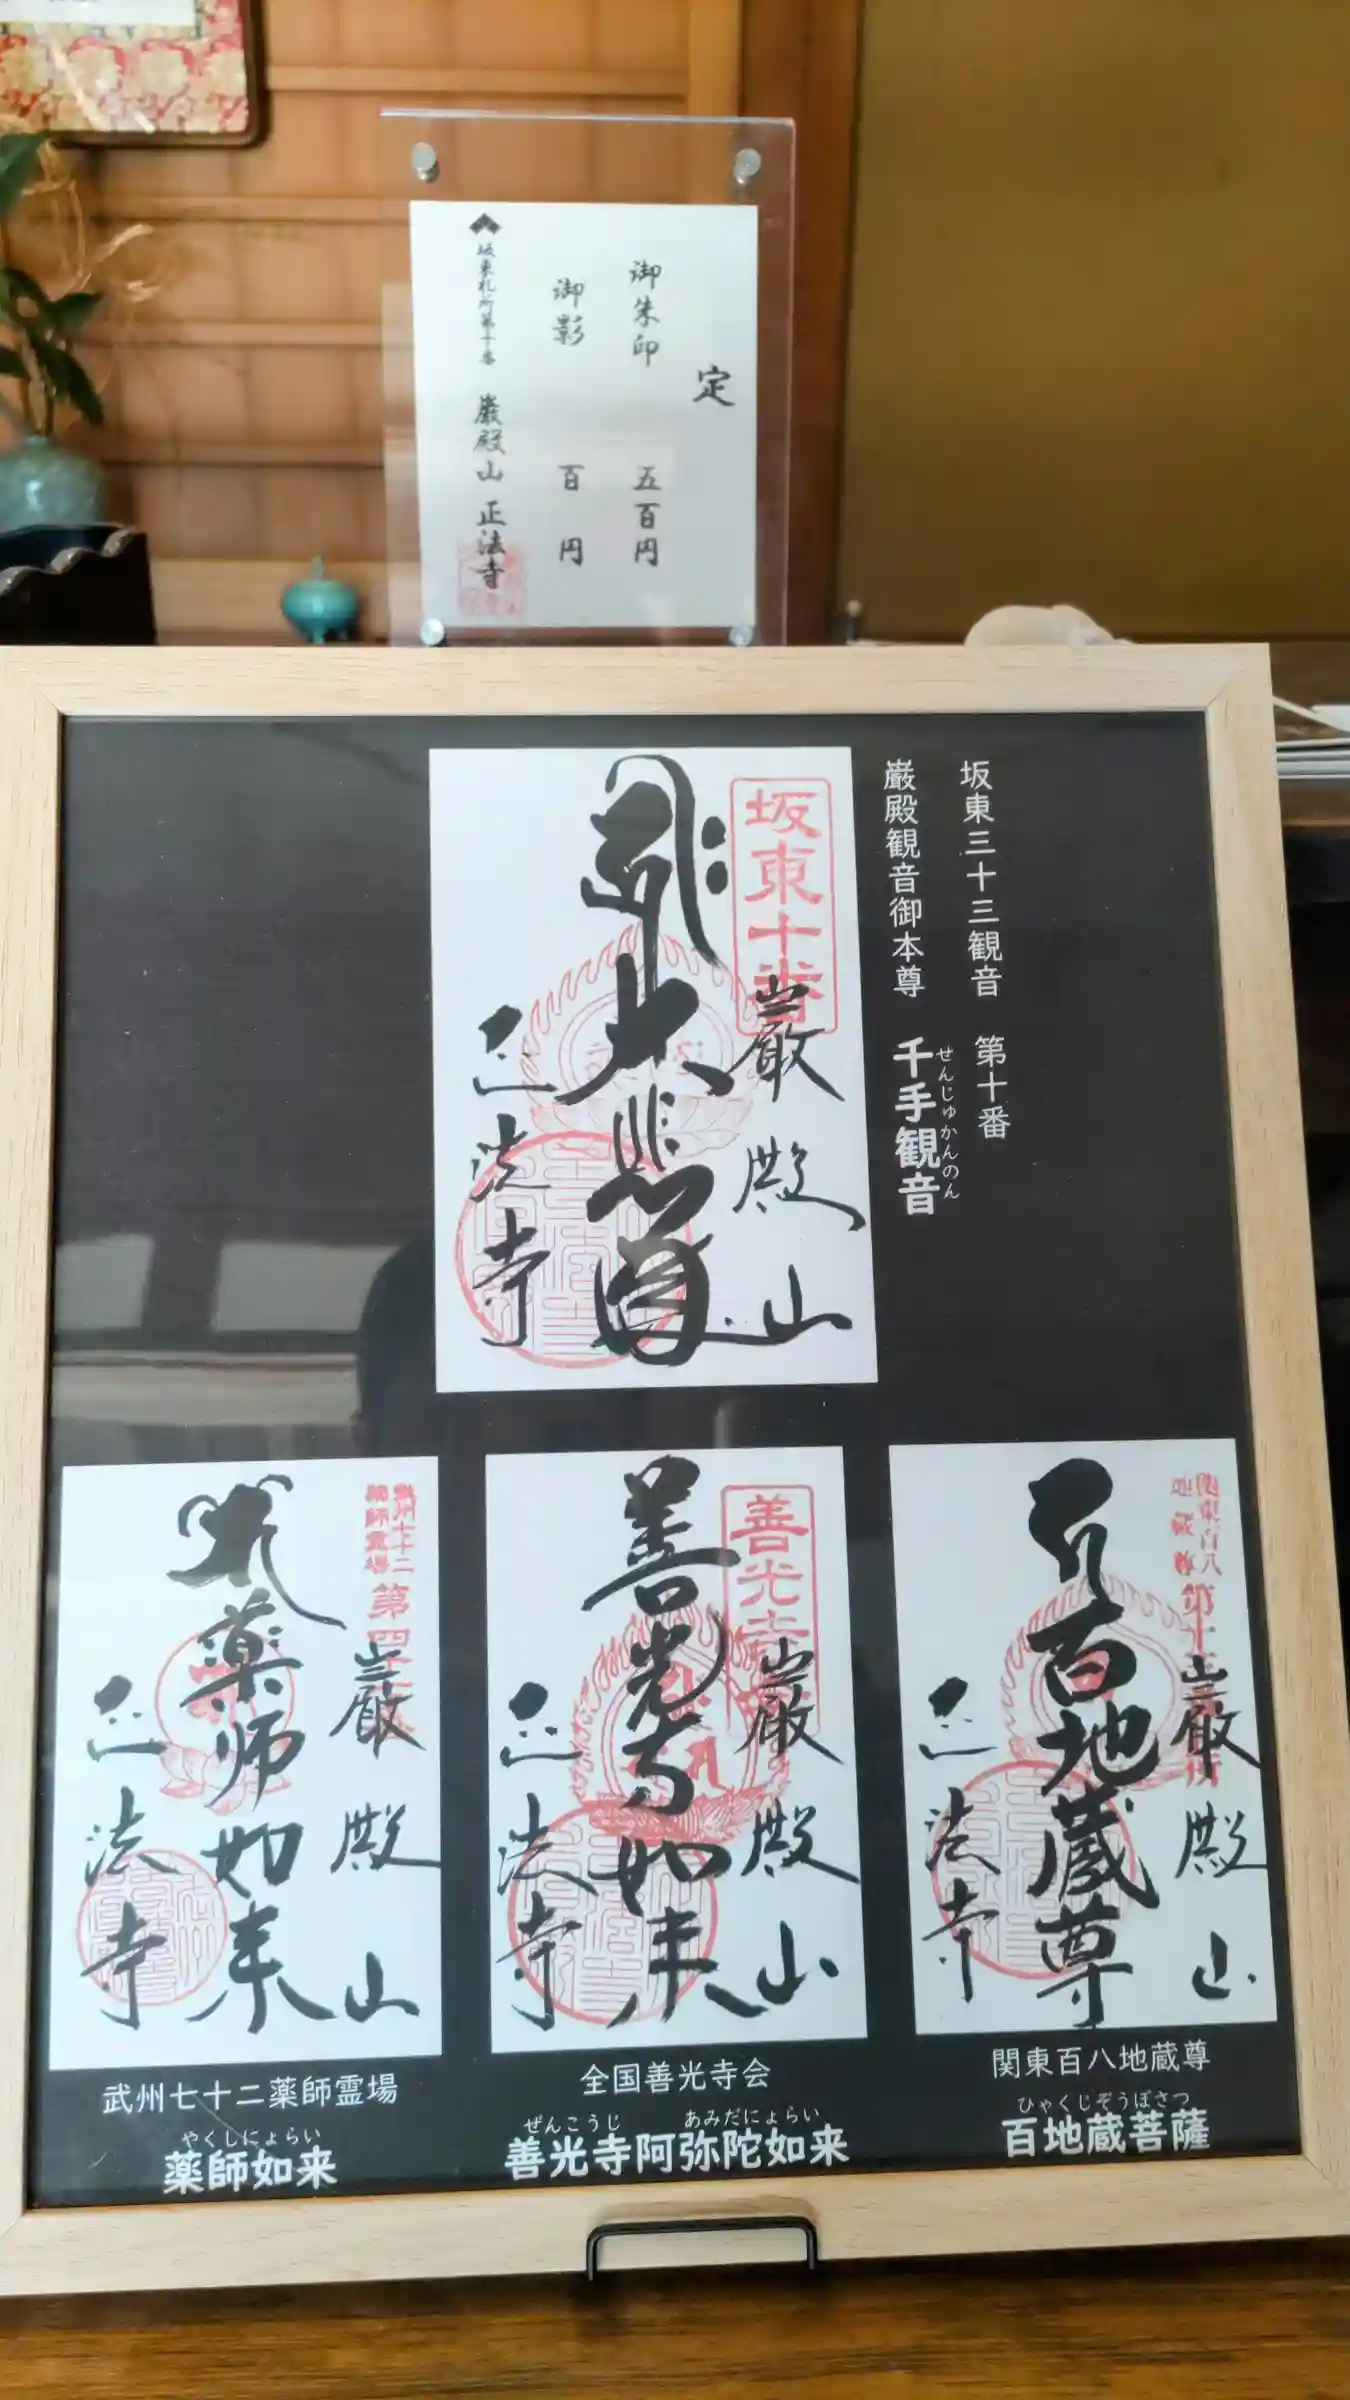 定
御朱印 五百円
御影 百円
坂東札所第十番 巌殿山 正法寺
坂東三十三観音 第十番
巌殿観音御本尊 千手観音
せんじゅかんのん
坂東十番
巌殿山
大悲尊
正法寺
第四
巌殿山
薬師如来
正法寺
武州七十二薬師霊場
やくしにょらい
薬師如来
善光寺
巌殿山
善光寺如来
正法寺
全国善光寺会
ぜんこうじ あみだにょらい
善光寺阿弥陀如来
関東百八
地蔵尊
巌殿山
百地蔵尊
正法寺
関東百八地蔵尊
ひゃくじぞうぼさつ
百地蔵菩薩